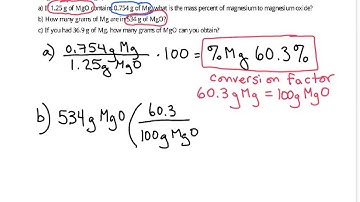 a) If 1.25 g of MgO contains 0.754 g Mg, what is the mass percent of magnesium to magnesium oxide?
b) How many grams of Mg are in 534 g MgO?
c) If you had 36.9 g of Mg, how many grams of MgO can you obtain?
a) 0.754 g Mg / 1.25 g MgO · 100 = % Mg 60.3 %
conversion factor
60.3 g Mg = 100 g MgO
b) 534 g MgO ( 60.3 / 100 g MgO